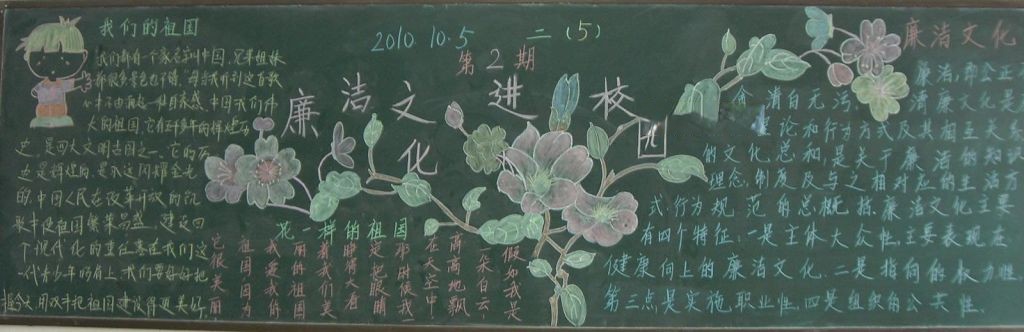 我们的祖国
我们都有一个家名字叫中国,兄弟姐妹
大的祖国,它有五千多年的辉煌历
史,是四大文明古国之一,它的历
史是辉煌的,是永远闪耀金光
的,中国人民在改革开放的
把祖国繁荣昌盛,建设四
个现代化的重任寄托我们这
一代青少年的肩上,我们要好好把
用双手把祖国建设得更美好。
2010.10.5
二(5)
第2期
廉洁文化进校园
花一样的祖国
假如我是
一朵白云
高高地飘
在天空中
那时候我
定把眼睛
睁得大大看
看我们美
丽的祖国
我爱我的
祖国因为
它很美丽
廉洁文化
廉洁,即公正
清白无污
清廉文化是
论和行为方式及其相互关系
的文化总和,是关于廉洁的知识
理念,制度及与之相对应的生活方
式,行为规范的总概括.廉洁文化主要
有四个特征:一是主体大众性,主要表现在
健康向上的廉洁文化.二是指向的权力性.
第三点是实施职业性.四是组织的公共性.